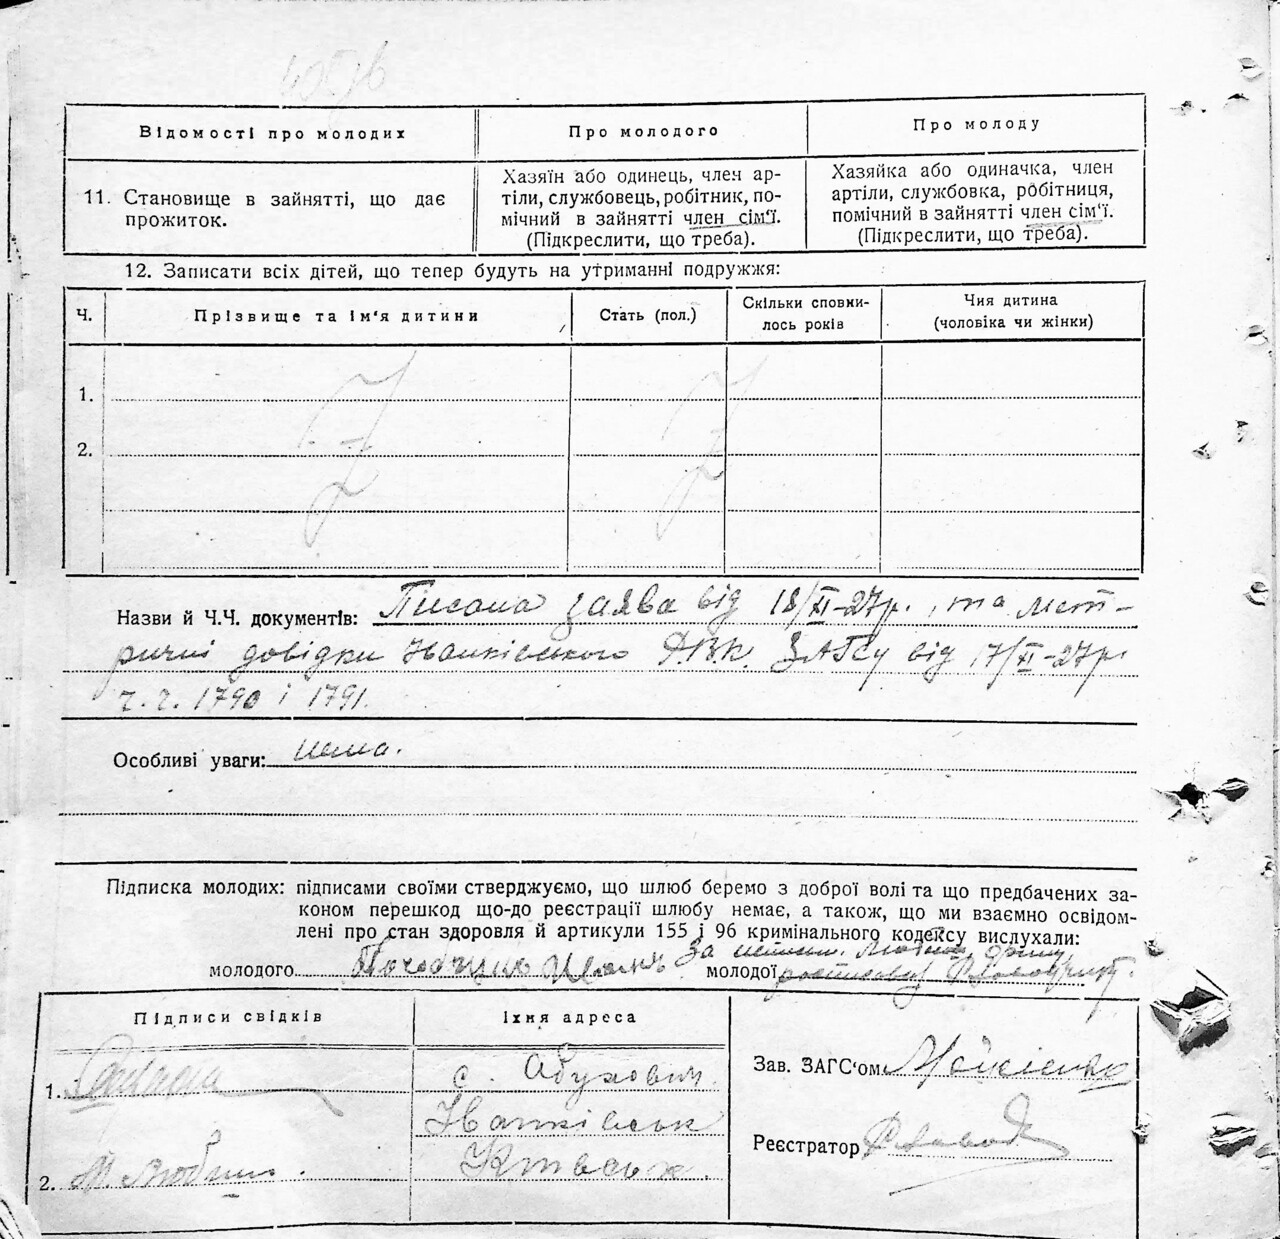 Відомості про молодих
Про молодого
Про молоду
11. Становище в зайнятті, що дає
прожиток.
Хазяїн або одинець, член ар-
тіли, службовець, робітник, по-
мічний в зайнятті член сім'ї.
(Підкреслити, що треба).
Хазяйка або одиначка, член
артіли, службовка, робітниця,
помічний в зайнятті член сім'ї.
(Підкреслити, що треба).
12. Записати всіх дітей, що тепер будуть на утриманні подружжя:
Ч.
Прізвище та ім'я дитини
Стать (пол.)
Скільки сповни-
лось років
Чия дитина
(чоловіка чи жінки)
1.
2.
Назви й Ч.Ч. документів: Писана заява від 18/XI-27р., та мет-
ричні довідки Іванківського Р.В.К. ЗАГСу від 17/XI-27р.
ч.ч. 1790 і 1791.
Особливі уваги: нема.
Підписка молодих: підписами своїми стверджуємо, що шлюб беремо з доброї волі та що предбачених за-
коном перешкод що-до реєстрації шлюбу немає, а також, що ми взаємно освідом-
лені про стан здоровля й артикули 155 і 96 кримінального кодексу вислухали:
За
молодого
молодої
Підписи свідків
Їхня адреса
1.
с. Обуховичі
Іванківськ
2. М. Любич
Київськ.
Зав. ЗАГС'ом Мойсієнко
Реєстратор